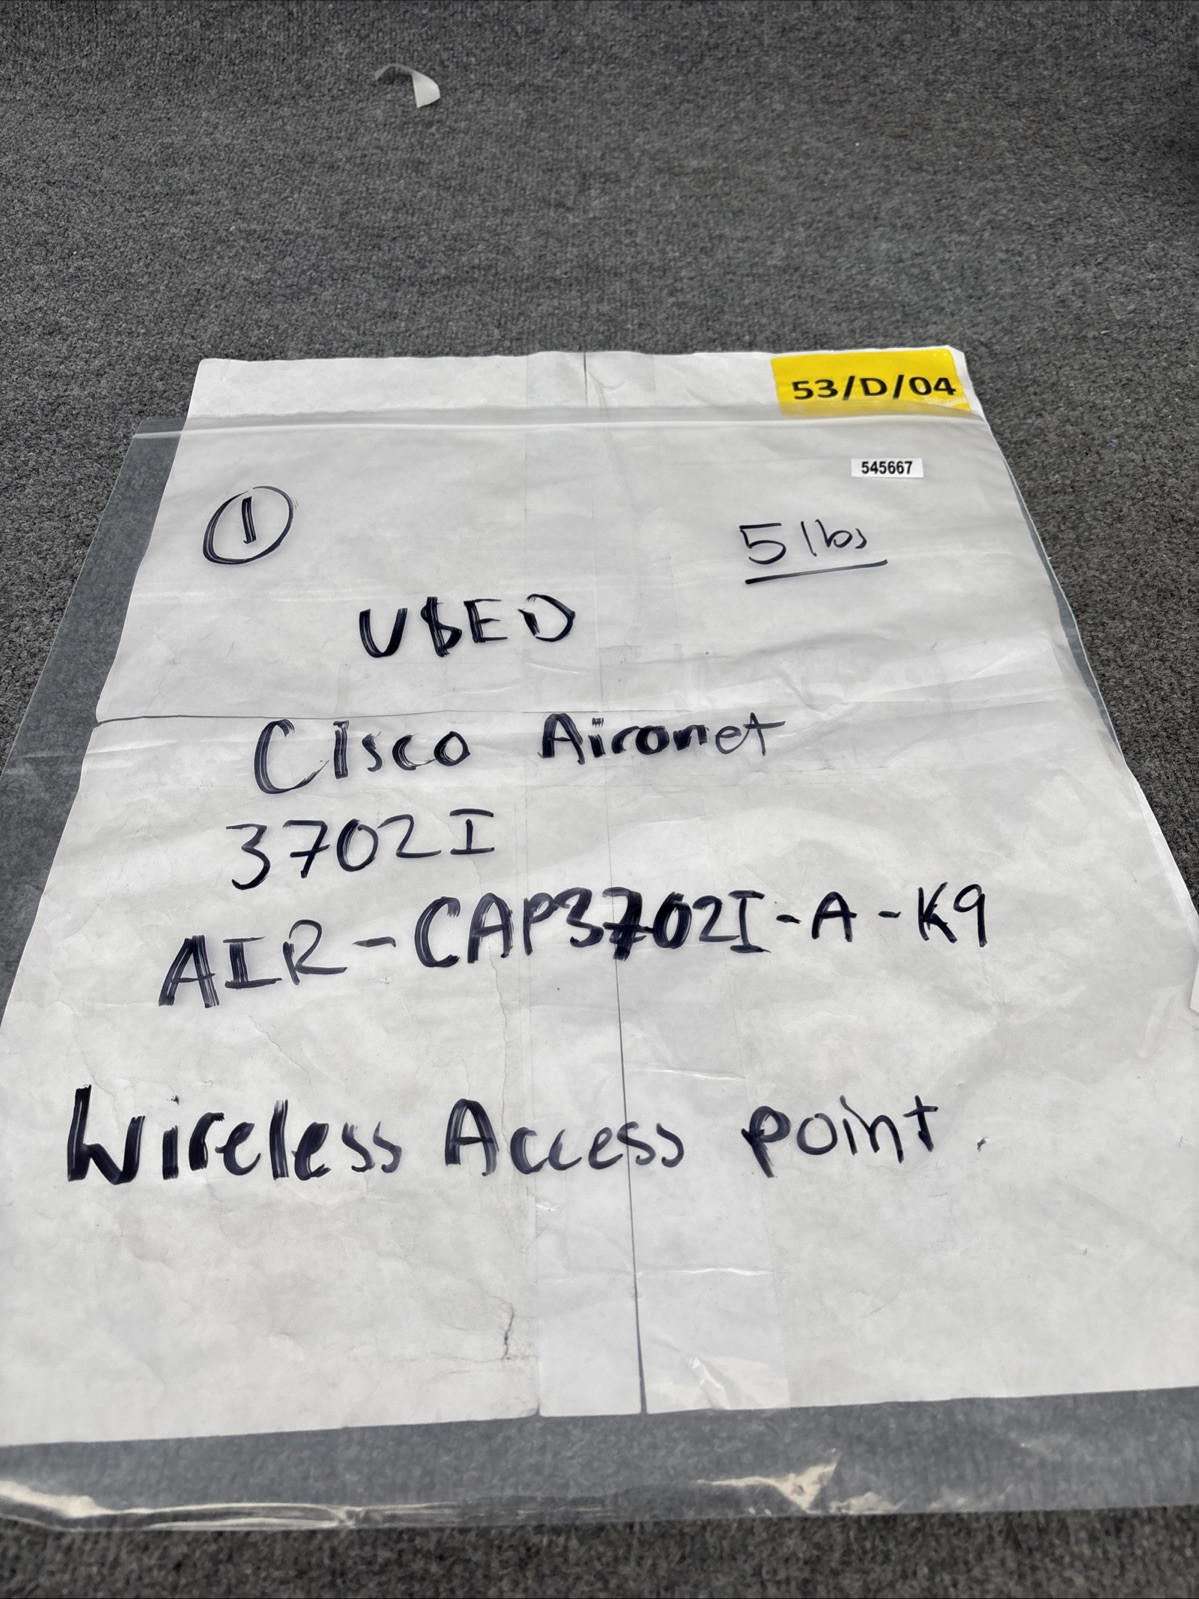 53/D/04
545667
1
5 lbs
USED
Cisco Aironet
3702I
AIR-CAP3702I-A-K9
Wireless Access point.